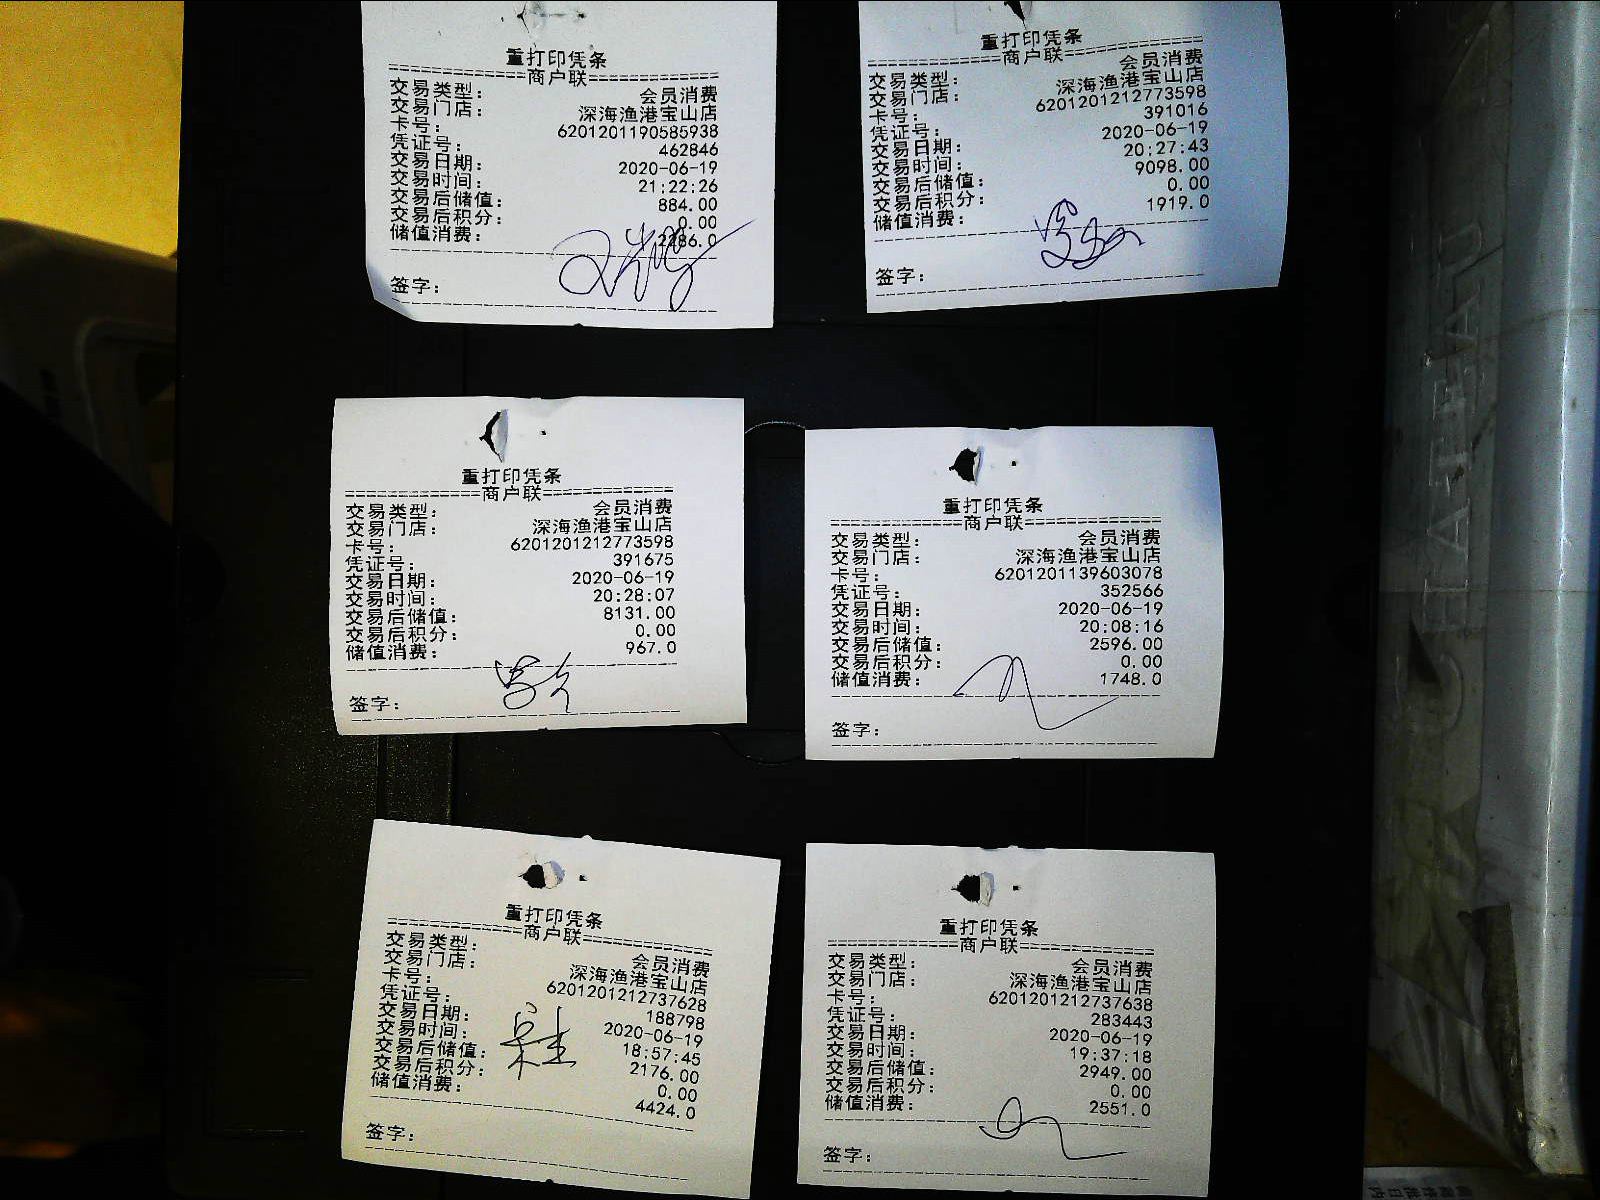 重打印凭条
==============商户联==============
交易类型： 会员消费
交易门店： 深海渔港宝山店
卡号： 6201201190585938
凭证号： 462846
交易日期： 2020-06-19
交易时间： 21:22:26
交易后储值： 884.00
交易后积分： 0.00
储值消费： 2286.0
签字：
重打印凭条
==============商户联==============
交易类型： 会员消费
交易门店： 深海渔港宝山店
卡号： 6201201212773598
凭证号： 391016
交易日期： 2020-06-19
交易时间： 20:27:43
交易后储值： 9098.00
交易后积分： 0.00
储值消费： 1919.0
签字：
重打印凭条
==============商户联==============
交易类型： 会员消费
交易门店： 深海渔港宝山店
卡号： 6201201212773598
凭证号： 391675
交易日期： 2020-06-19
交易时间： 20:28:07
交易后储值： 8131.00
交易后积分： 0.00
储值消费： 967.0
签字：
重打印凭条
==============商户联==============
交易类型： 会员消费
交易门店： 深海渔港宝山店
卡号： 6201201139603078
凭证号： 352566
交易日期： 2020-06-19
交易时间： 20:08:16
交易后储值： 2596.00
交易后积分： 0.00
储值消费： 1748.0
签字：
重打印凭条
==============商户联==============
交易类型： 会员消费
交易门店： 深海渔港宝山店
卡号： 6201201212737628
凭证号： 188798
交易日期： 2020-06-19
交易时间： 18:57:45
交易后储值： 2176.00
交易后积分： 0.00
储值消费： 4424.0
签字：
重打印凭条
==============商户联==============
交易类型： 会员消费
交易门店： 深海渔港宝山店
卡号： 6201201212737638
凭证号： 283443
交易日期： 2020-06-19
交易时间： 19:37:18
交易后储值： 2949.00
交易后积分： 0.00
储值消费： 2551.0
签字：